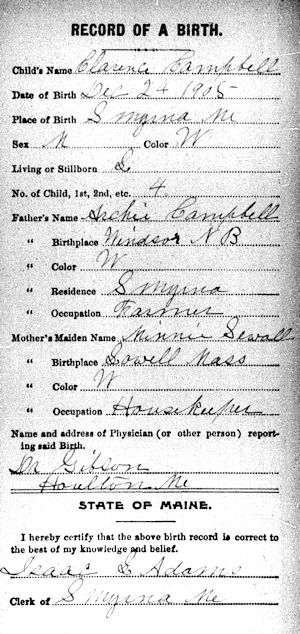 RECORD OF A BIRTH.
Child's Name Clarence Campbell
Date of Birth Dec 24 1905
Place of Birth Smyrna Me
Sex M Color W
Living or Stillborn L
No. of Child, 1st, 2nd, etc. 4
Father's Name Archie Campbell
" Birthplace Windsor N B
" Color W
" Residence Smyrna
" Occupation Farmer
Mother's Maiden Name Minnie Sewall
" Birthplace Lowell Mass
" Color W
" Occupation Housekeeper
Name and address of Physician (or other person) report-
ing said Birth.
Dr Gibson
Houlton Me
STATE OF MAINE.
I hereby certify that the above birth record is correct to
the best of my knowledge and belief.
Isaac E Adams
Clerk of Smyrna Me